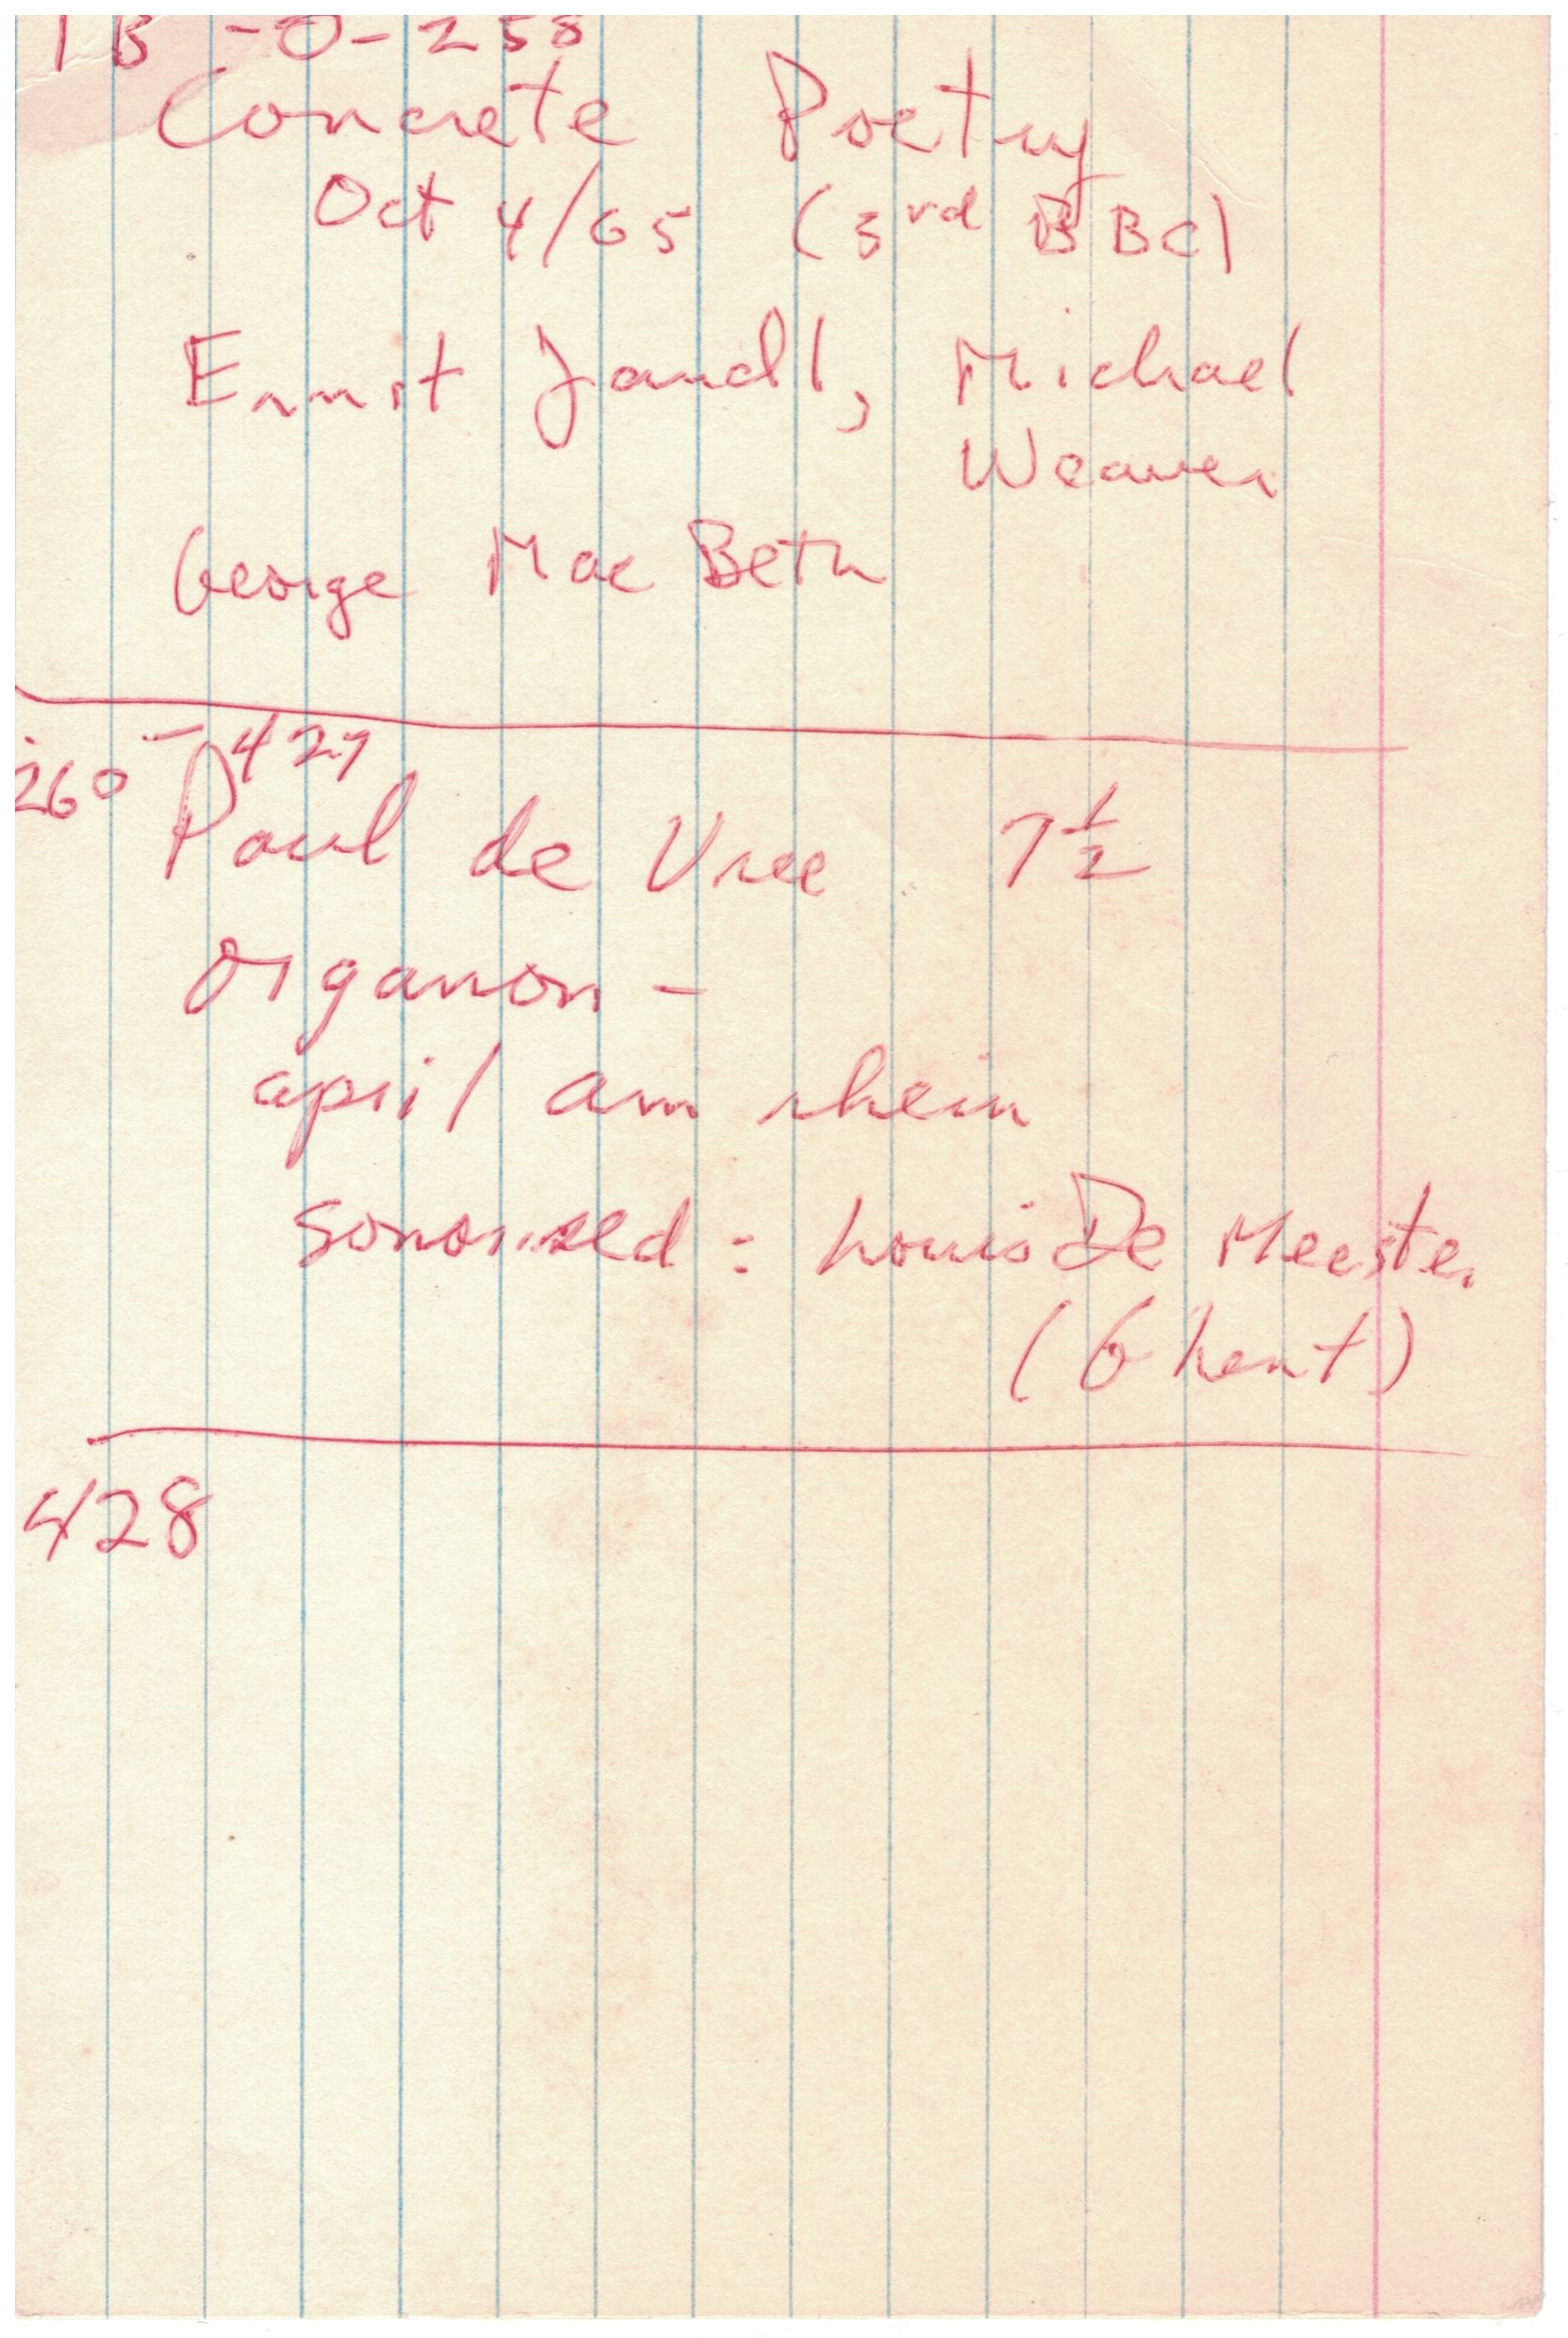 1B -0-258
Concrete Poetry
Oct 4/65 (3rd BBC)
Ernst Jandl, Michael
Weaver
George Mac Beth
260 - 427
Paul de Vree 7 1/2
organon -
april am rhein
sonorized : Louis De Meester
(Ghent)
428